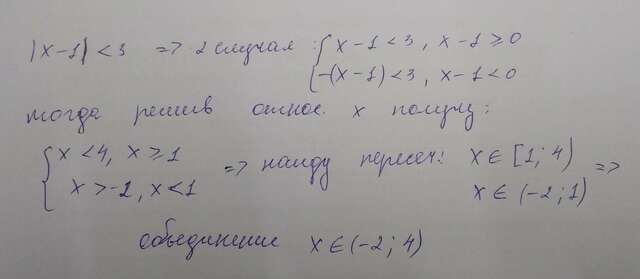 |x-1|<3 => 2 случая: { x-1<3, x-1≥0
-(x-1)<3, x-1<0
тогда решив относ. x получу:
{ x<4, x≥1 => найду пересеч: x∈[1;4) =>
x>-2, x<1 x∈(-2;1)
объединение x∈(-2;4)